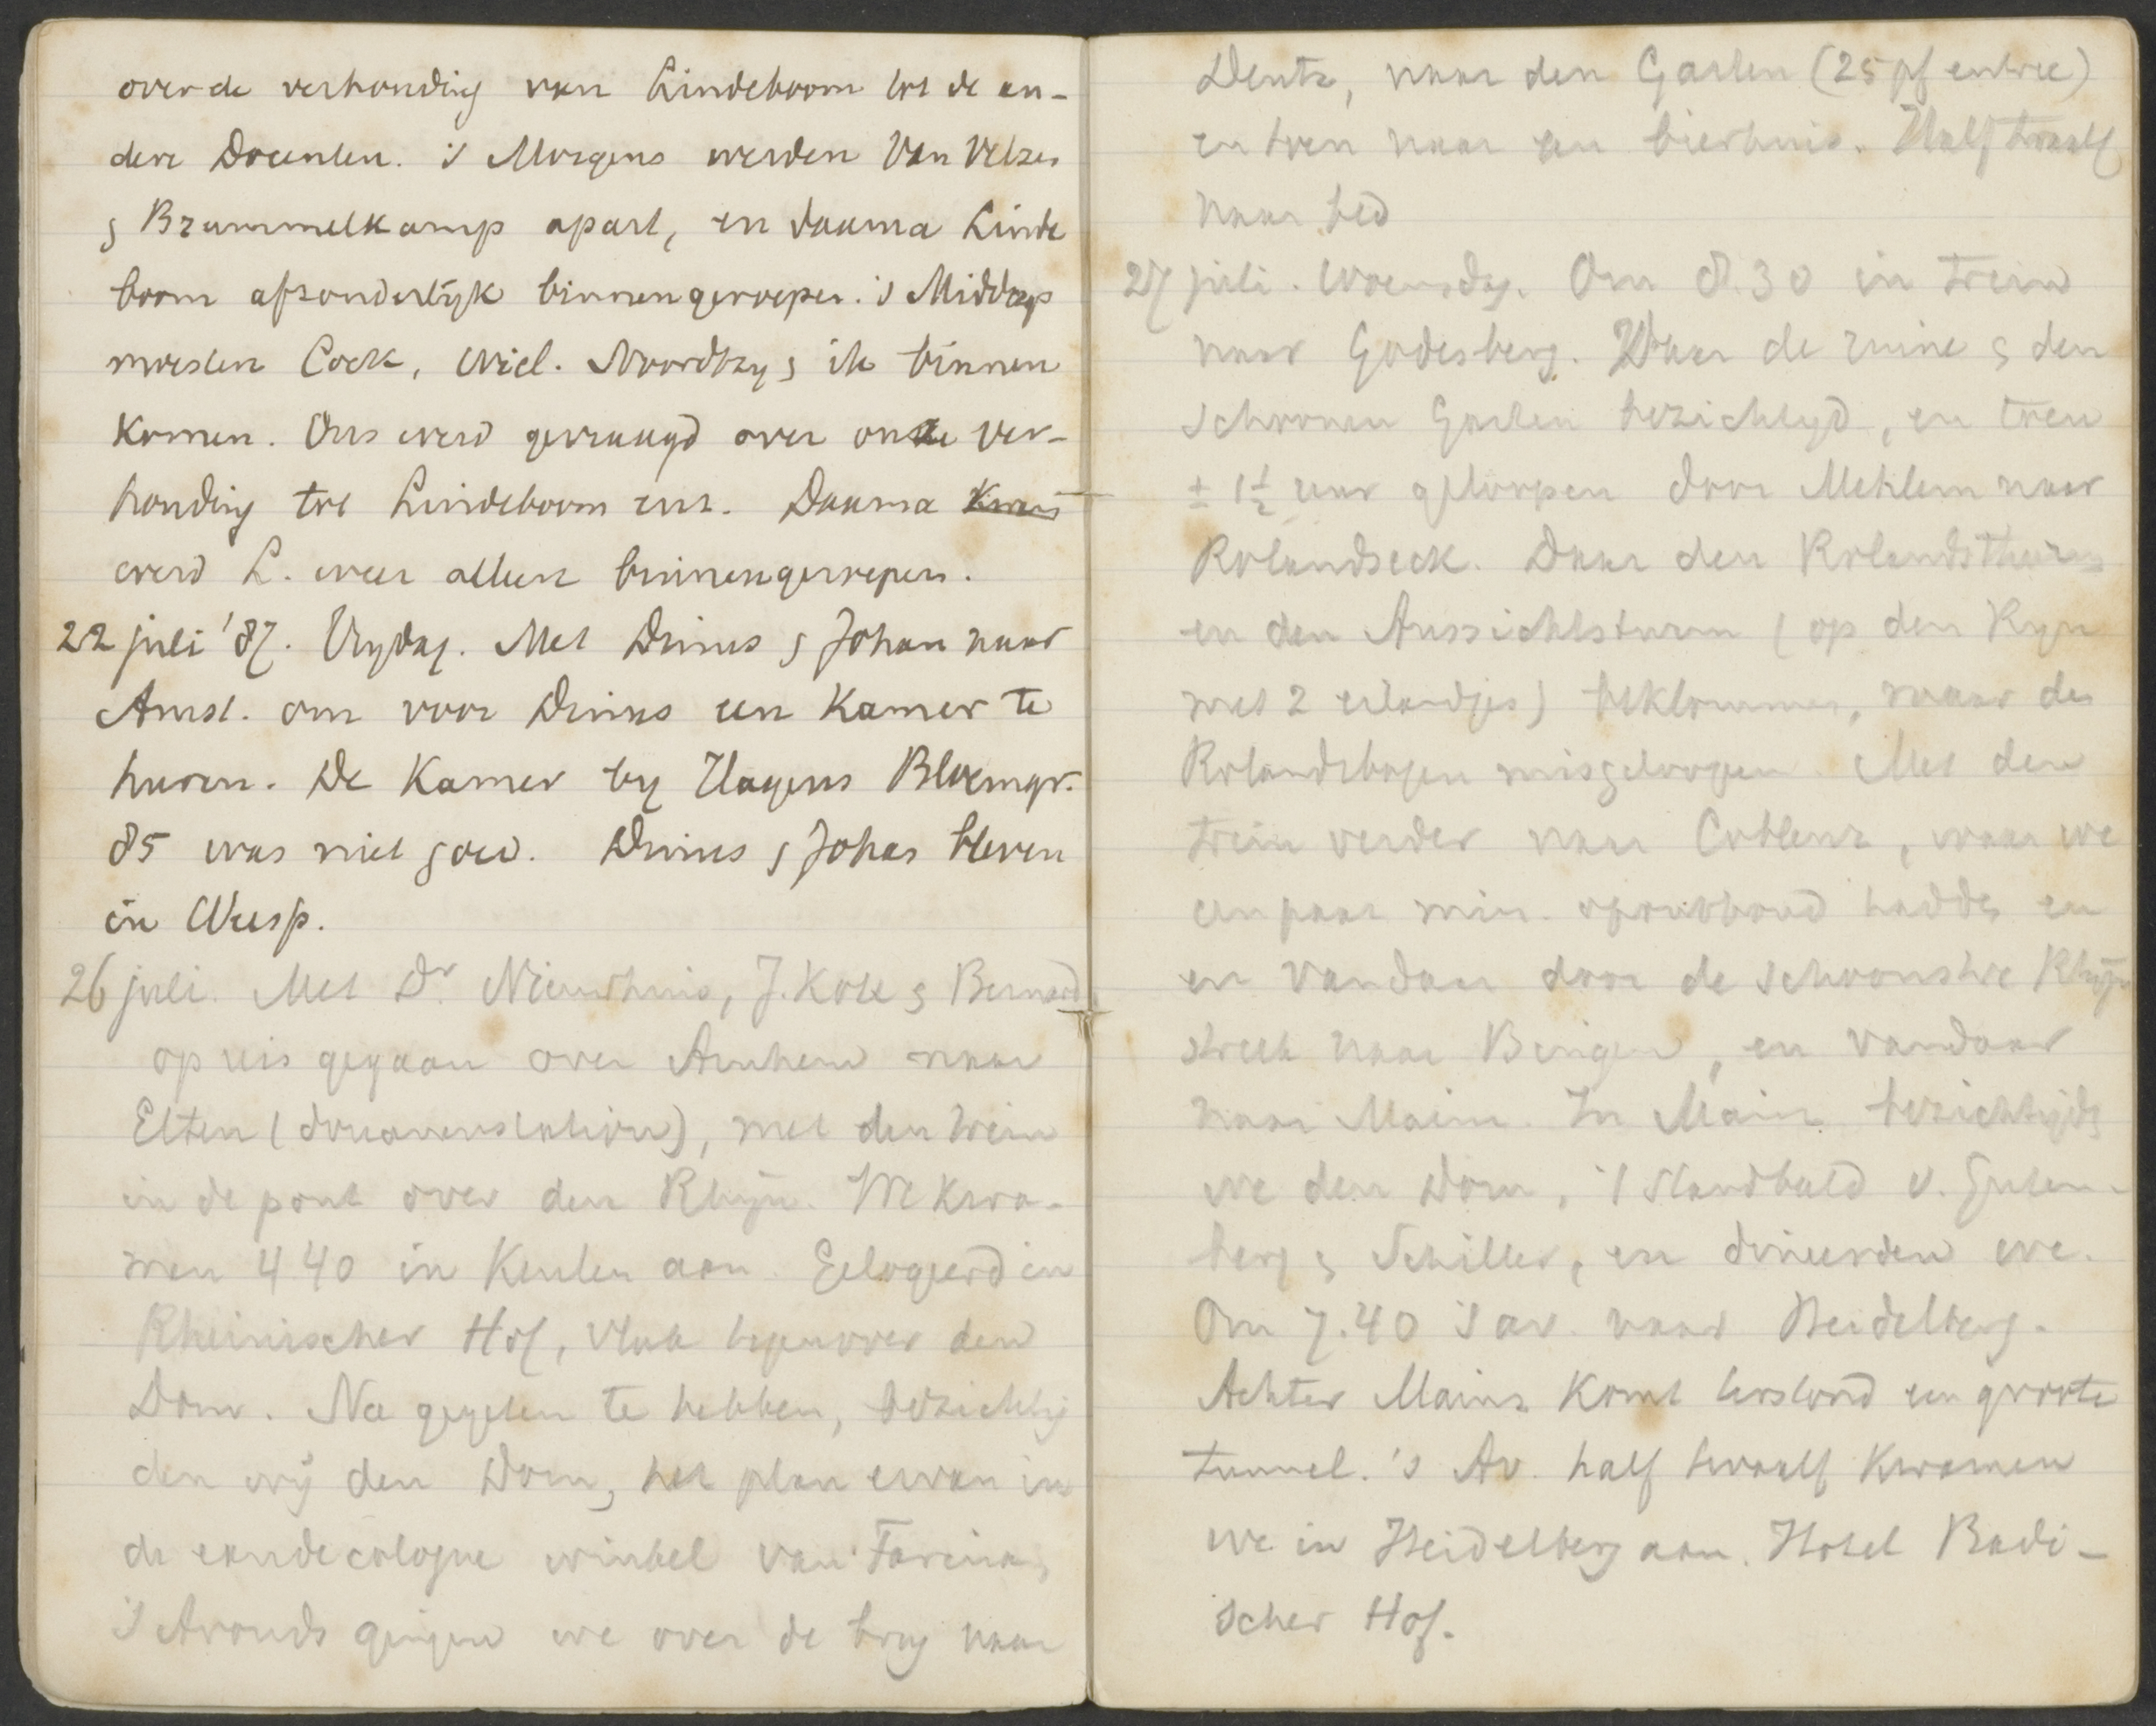 over de verhouding van Lindeboom tot de an-
dere Docenten. 's Morgens werden Van Velzen
& Brummelkamp apart, en daarna Linde
boom afzonderlijk binnengeroepen. 's Middags
moesten Cock, Wiel. Noordtzy & ik binnen
komen. Ons werd gevraagd over onze ver-
houding tot Lindeboom enz. Daarna
werd L. weer alleen binnengeroepen.
22 juli '87. Vrydag. Met Drinus & Johan naar
Amst. om voor Drinus een kamer te
huren. De kamer by Hagens Bloemgr.
85 was niet goed. Drinus & Johan bleven
in Weesp.
26 juli. Met Dr. Nieuwhuis, J. Kok & Bernard
op reis gegaan over Arnhem naar
Elten (douanenstation), met den trein
in de pont over den Rhijn. We kwa-
men 4.40 in Keulen aan. Gelogeerd in
Rheinischer Hof, vlak tegenover den
Dom. Na gegeten te hebben, bezichtig
den wij den Dom, het plan ervan in
de eau de cologne winkel van Farina,
's Avonds gingen we over de brug naar
Deutz, naar den Garten (25 pf entree)
en toen naar een bierhuis. Half twaalf
naar bed
27 juli. Woensdag. Om 8.30 in trein
naar Godesberg. Daar de ruine & den
schoonen Garten bezichtigd, en toen
± 1½ uur geloopen door Mehlem naar
Rolandseck. Daar den Rolandsthurm
en den Aussichtsturm (op den Ryn
met 2 eilandjes) beklommen, maar den
Rolandsbogen misgeloopen. Met den
trein verder naar Coblenz, waar we
een paar min. oponthoud hadden en
en vandaar door de schoonste Rhijn
streek naar Bingen, en vandaar
naar Mainz. In Mainz bezichtigde
we den Dom, 't standbeeld v. Guten-
berg & Schiller, en dineerden we.
Om 7.40 's av. naar Heidelberg.
Achter Mainz komt terstond een groote
tunnel. 's Av. half twaalf kwamen
we in Heidelberg aan. Hotel Badi-
scher Hof.